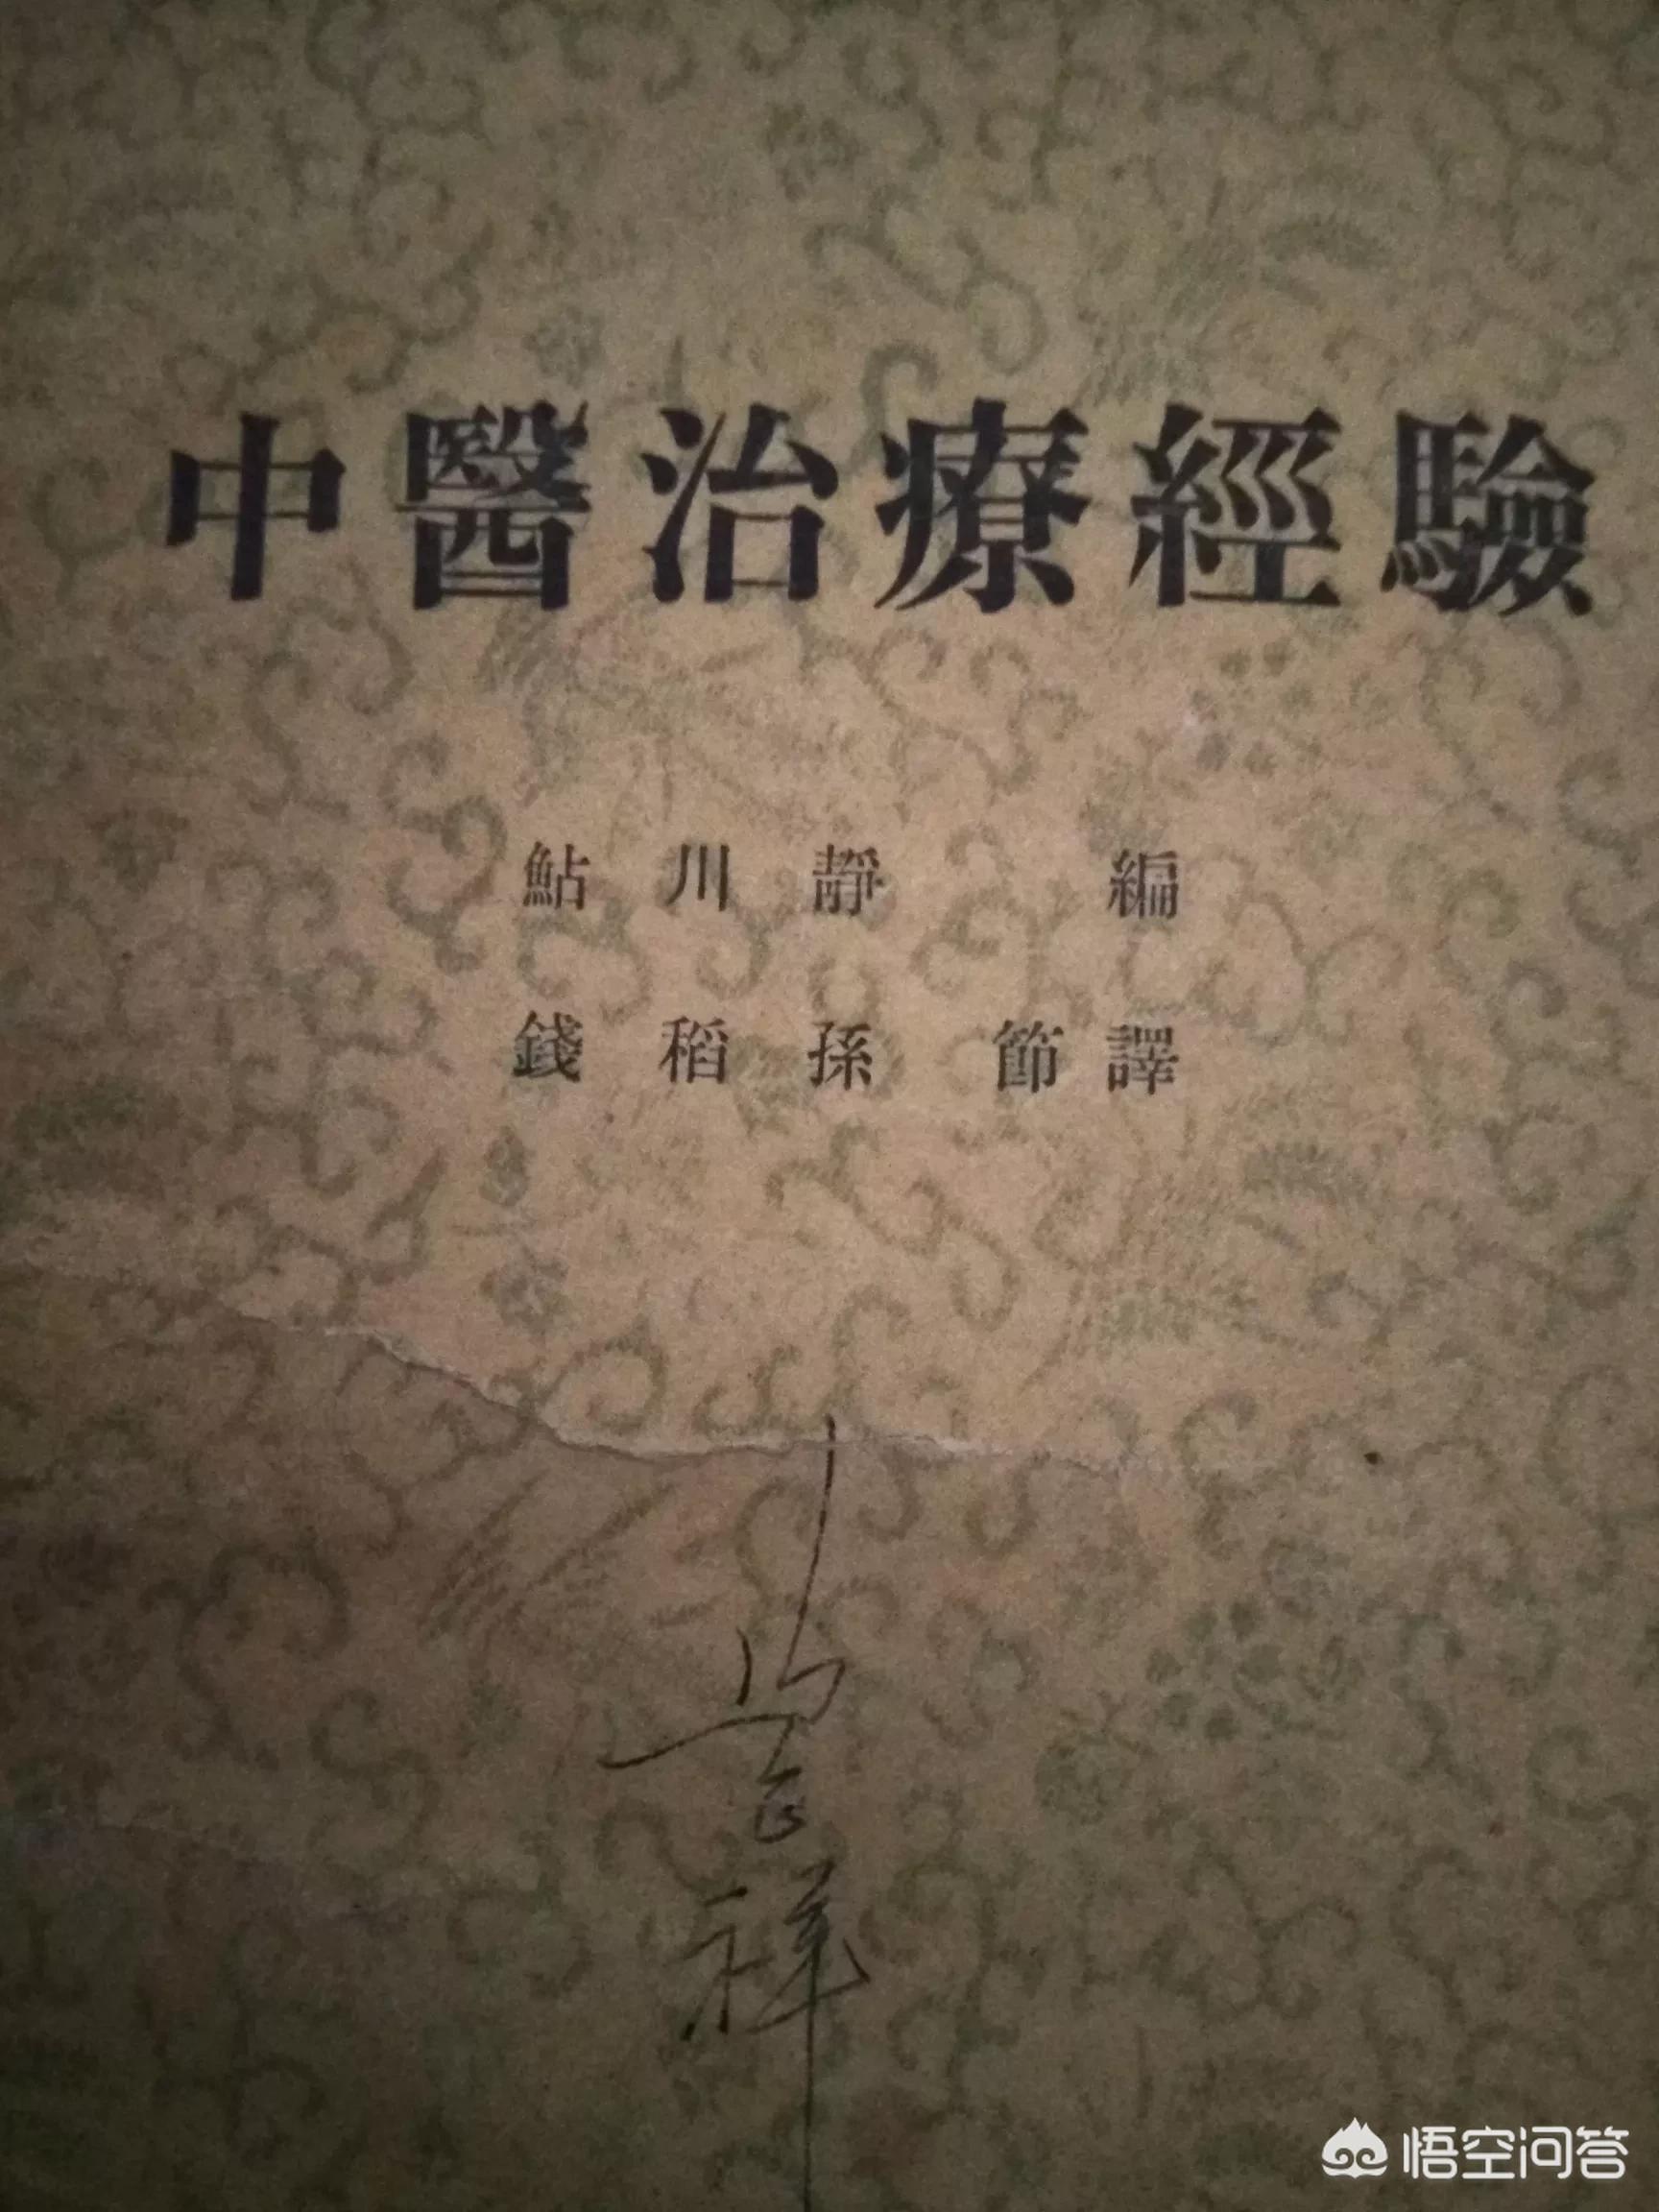 中醫治療經驗
鮎川靜 編
錢稻孫 節譯
祥
悟空问答